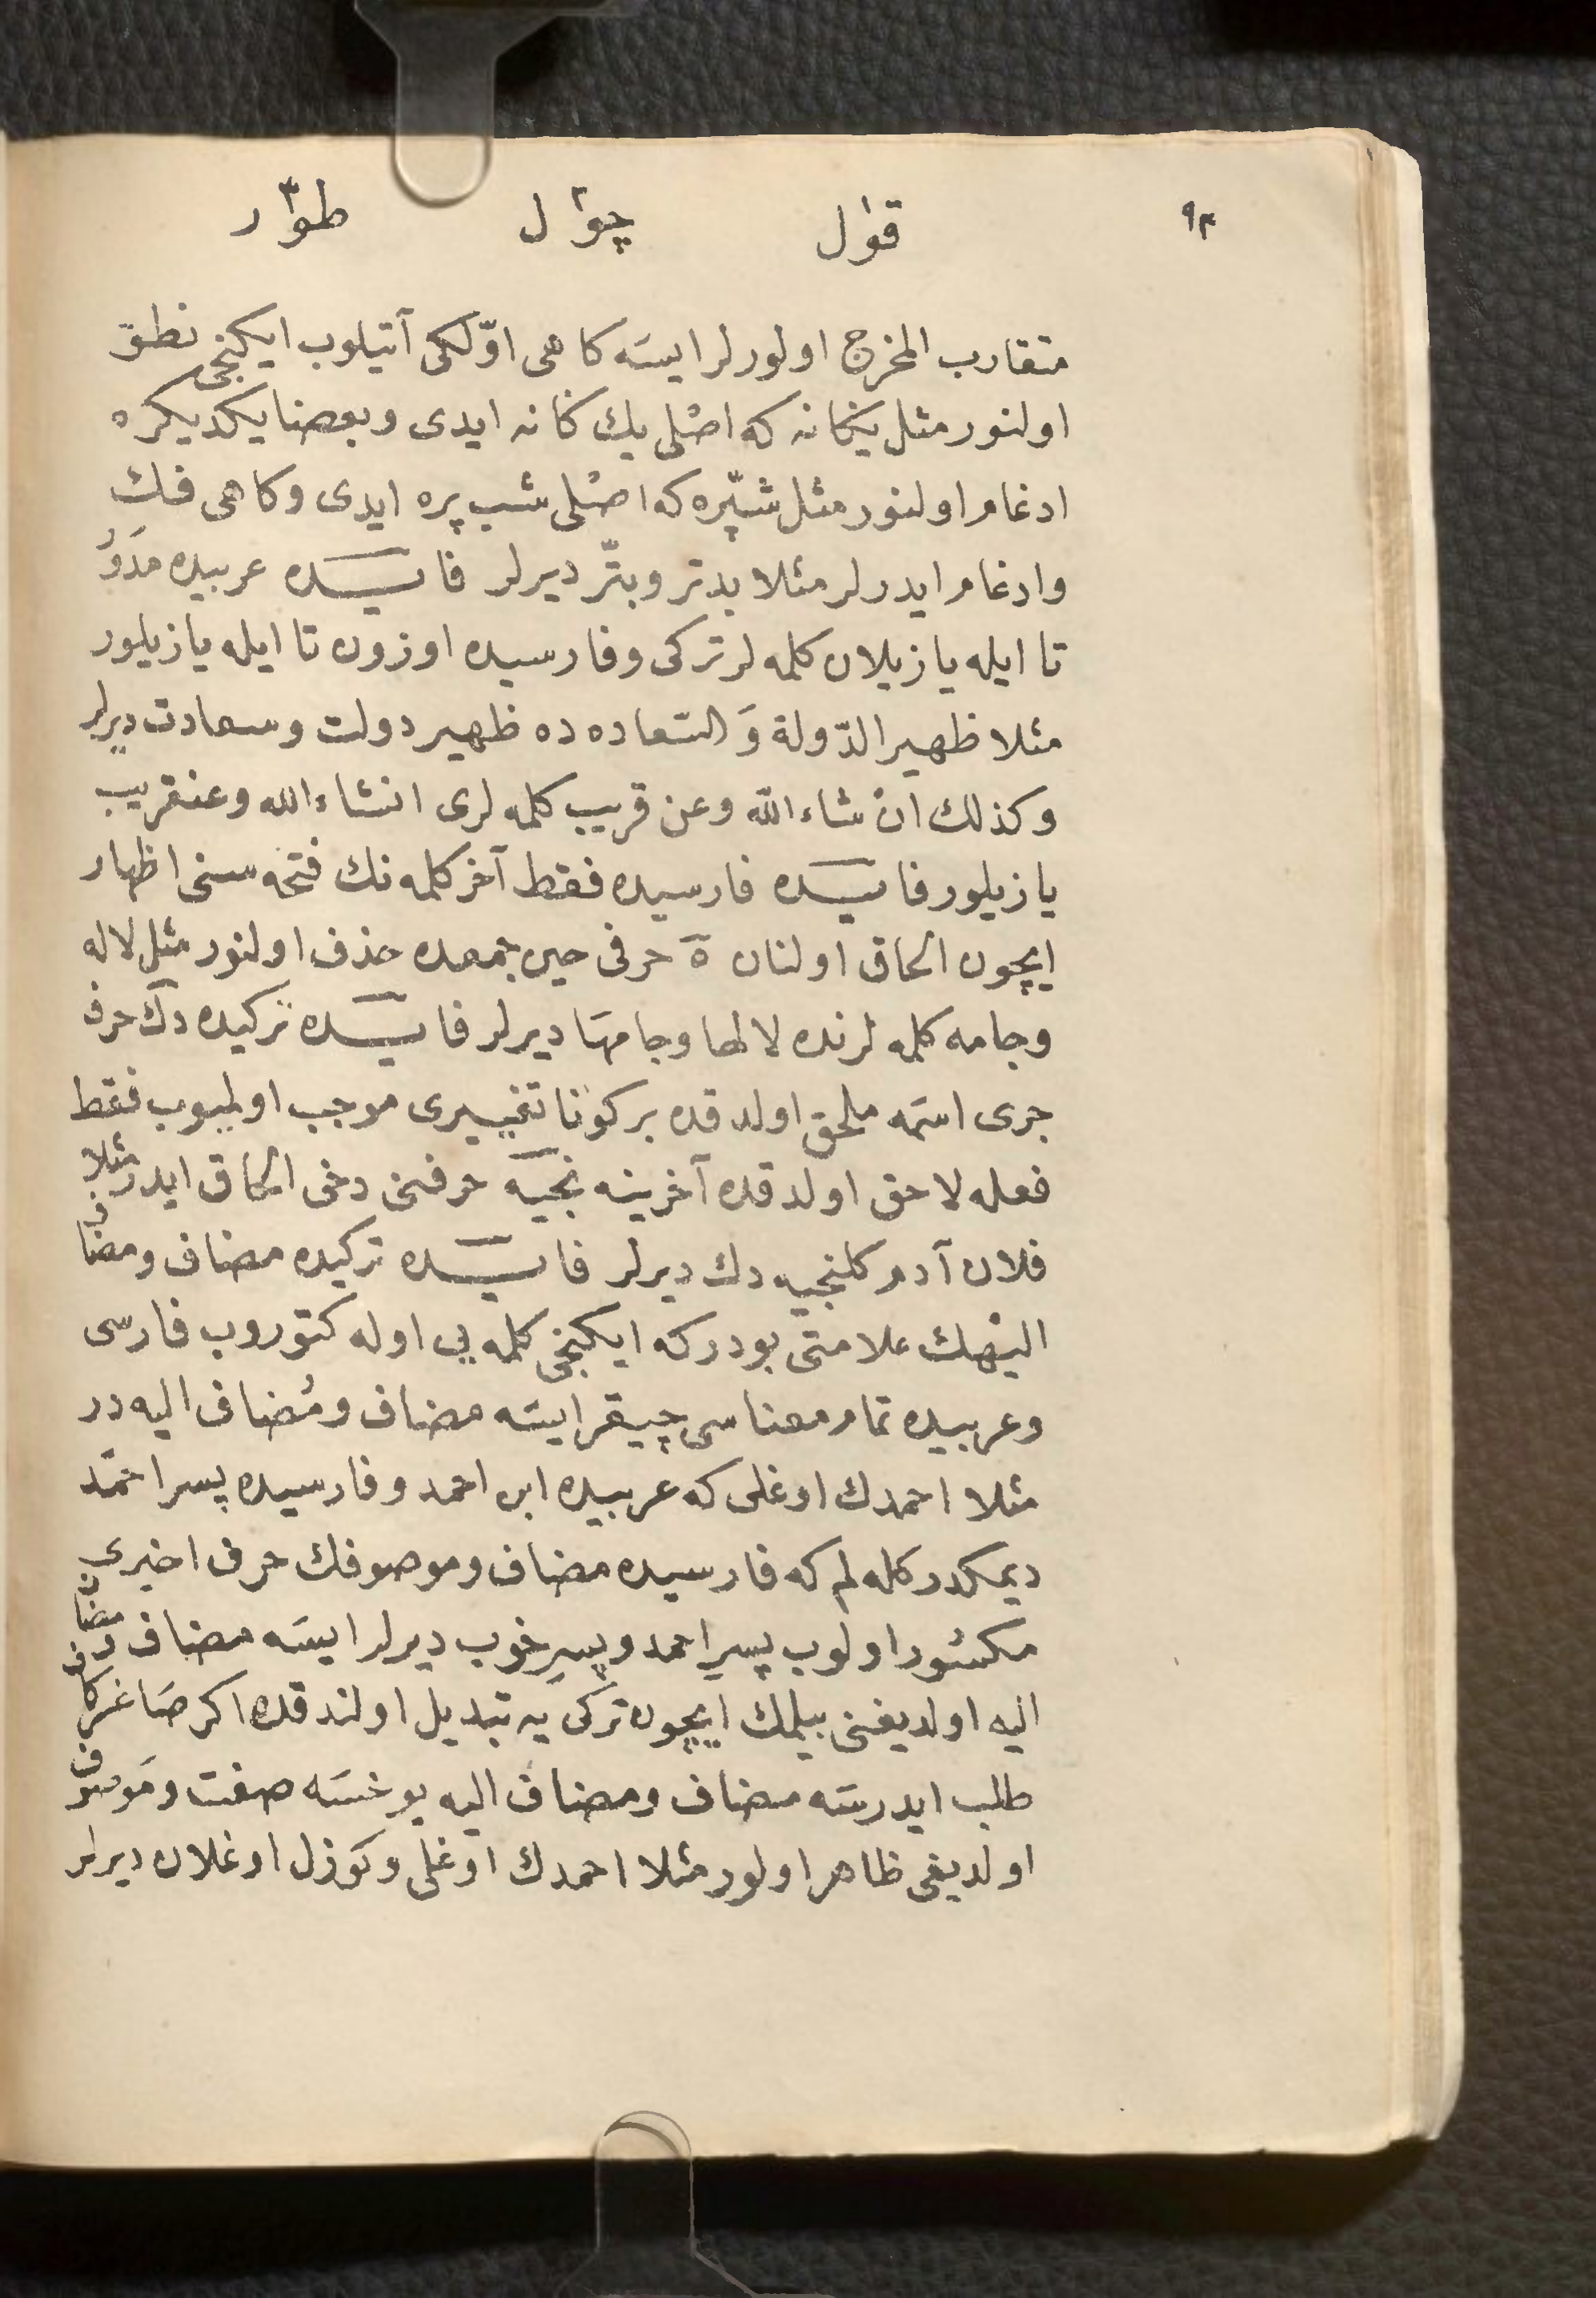 ٩٣
قوٰل چؤٰل طؤٰر
متقارب المخرج اولورلر ايسَه كاهى اوّلكى آتيلوب ايكنجى نطق
اولنور مثل يكانه كه اصْلى يك كانه ايدى وبعضا يكديكره
ادغام اولنور مثل شپّره كه اصْلى شب پره ايدى وكاهى فك
وادغام ايدرلر مثلا بدتر وبتّر ديرلر فائده عربيده مدَوَّر
تا ايله يازيلان كلمه لر تركى وفارسيده اوزون تا ايله يازيلور
مثلا ظهير الدّولة وَالسّعاده ده ظهير دولت وسعادت ديرلر
وكذلك انْ شاء الله وعن قريب كلمه لرى انشاء الله وعنقريب
يازيلور فائده فارسيده فقط آخر كلمه نك فتحه سنى اظهار
ايچون الحاق اولنان ه حرفى حين جمعده حذف اولنور مثل لاله
وجامه كلمه لرنده لالها وجامها ديرلر فائده تركيده دك حرف
جرى اسمه ملحق اولدقده بر كونا تغييرى موجب اولميوب فقط
فعله لاحق اولدقده آخرينه نجيه حرفنى دخى الحاق ايدر مثلا
فلان آدم كلنجيه دك ديرلر فائده تركيده مضاف ومضاف
اليْهك علامتى بودر كه ايكنجى كلمه يى اوله كتوروب فارسى
وعربيده تمام معناسى چيقر ايسَه مضاف ومُضاف اليه در
مثلا احمدك اوغلى كه عربيده ابن احمد وفارسيده پسر احمَد
ديمكدر كله لم كه فارسيده مضاف وموصوفك حرف اخيرى
مكسُور اولوب پسرِ احمد وپسرِ خوب ديرلر ايسَه مضاف ومضاف
اليه اولديغنى بيلمك ايچون تركى يه تبديل اولندقده اكر صَاغر كاف
طلب ايدرسَه مضاف ومضاف اليه يوخسَه صفت ومَوصوف
اولديغى ظاهر اولور مثلا احمدك اوغلى وكوزل اوغلان ديرلر